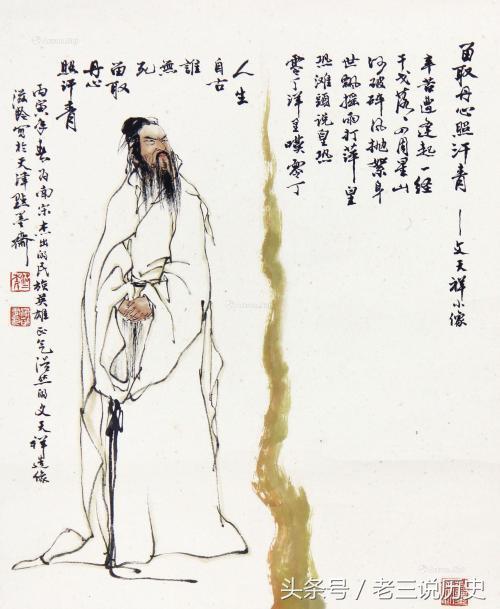 留取丹心照汗青——文天祥小像
辛苦遭逢起一经
干戈落〻四周星山
河破碎风抛絮身
世飘摇雨打萍皇
恐滩頭说皇恐
零丁洋里嘆零丁
人生
自古
誰
無
死
留取
丹心
照汗青
丙寅年春为南宋杰出的民族英雄正气浩然的文天祥造像
滋龄写于天津墨斋
头条号／老三说历史